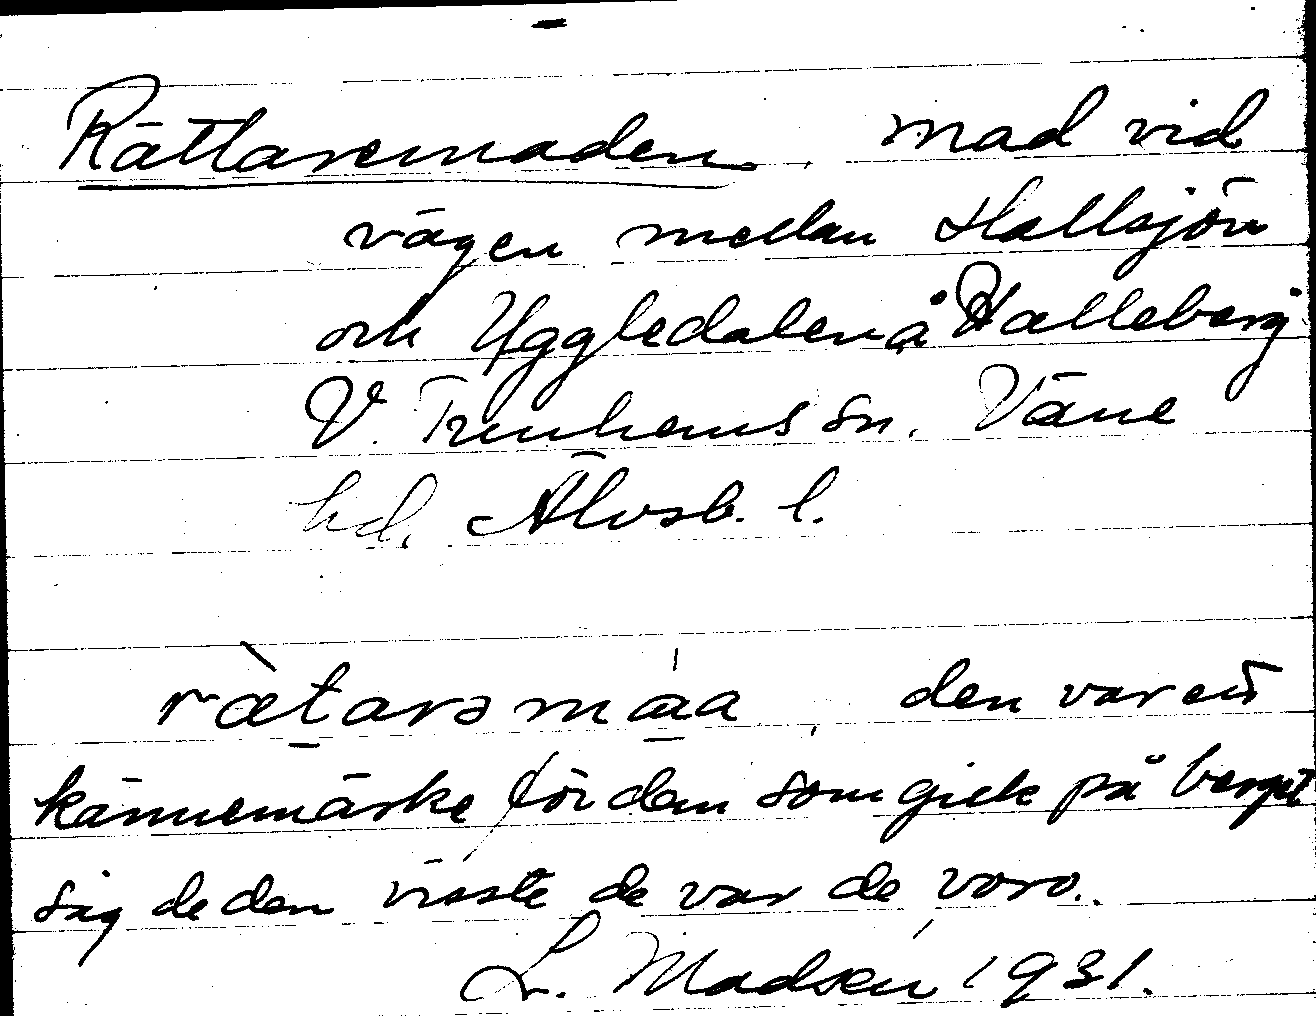 Rättaremaden, mad vid
vägen mellan Hallsjön
och Yggledalen å Halleberg
V. Tunhems sn. Väne
hd. Älvsb. l.
rætarəmåa, den var ett
kännemärke för den som gick på berget
såg de den visste de var de voro.
L. Madsén 1931.